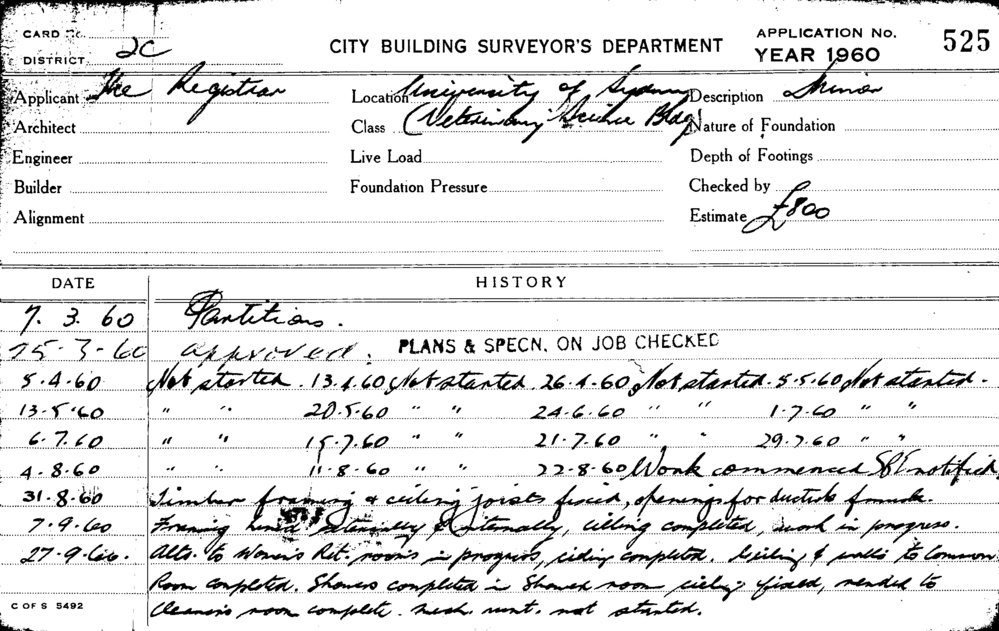 CARD No.
DISTRICT 2C
CITY BUILDING SURVEYOR'S DEPARTMENT
APPLICATION No. 525
YEAR 1960
Applicant The Registrar
Location University of Sydney
Description Minor
Architect
Class (Veterinary Science Bldg)
Nature of Foundation
Engineer
Live Load
Depth of Footings
Builder
Foundation Pressure
Checked by
Alignment
Estimate £800
DATE HISTORY
7. 3. 60 Partitions.
25-3-60 approved. PLANS & SPECN. ON JOB CHECKED
5-4-60 Not started. 13.4.60 Not started. 26-4-60 Not started. 5-5-60 Not started.
13-5-60 " " 20.5-60 " " 24-6.60 " " 1-7-60 " "
6.7.60 " " 15-7.60 " " 21-7.60 " " 29.7.60 " "
4-8-60 " " 11-8-60 " " 22-8-60 Work commenced notified
31-8-60 Timber framing & ceiling joists fixed, openings for ducts
7-9-60 Framing lined externally & internally, ceiling completed, work in progress.
27-9-60. Alts. to Women's Ret. rooms in progress, completed. Ceiling & walls to Common
Room completed. Showers completed in Shower room ceiling fixed, render to
Cleaner's room complete. mech. vent. not started.
C OF S 5492